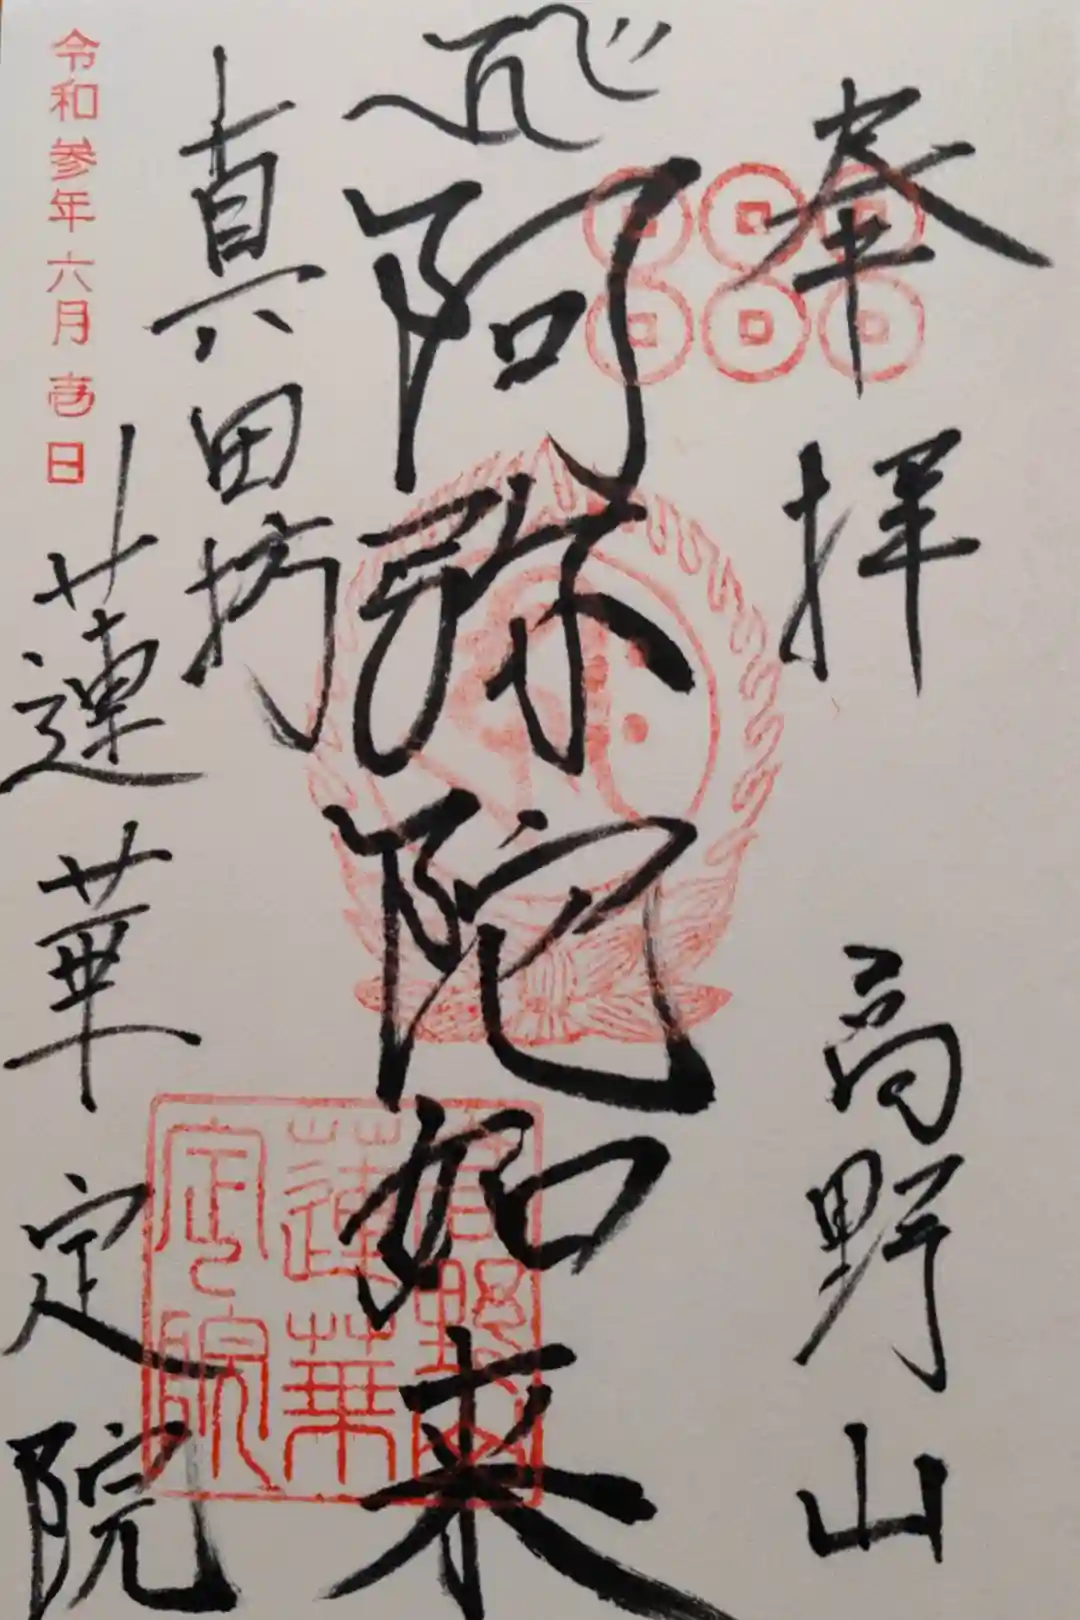 奉拝
高野山
阿弥陀如来
真田坊
蓮華定院
令和参年六月壱日
高野山
蓮華
定院